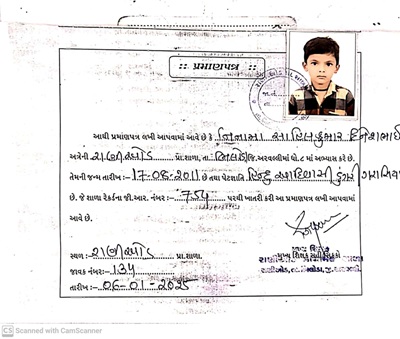 :: પ્રમાણપત્ર ::
આથી પ્રમાણપત્ર લખી આપવામાં આવે છે કે, નિનામા સાહિલકુમાર દિનેશભાઈ
અત્રેની રાજીખોડ પ્રા.શાળા, તા. ભિલોડા જિ.અરવલ્લીમાં ધો.૮ માં અભ્યાસ કરે છે.
તેમની જન્મ તારીખ :- 17-08-2011 છે તથા પેટાજાતિ હિન્દુ આદિવાસી ડુંગરી ગરાસિયા
છે. જે શાળા રેકર્ડના જી.આર. નંબર:- 754 પરથી ખાતરી કરી આ પ્રમાણપત્ર લખી આપવામાં
આવે છે.
સ્થળ : રાજીખોડ પ્રા.શાળા.
જાવક નંબર:- 134
તારીખ :- 06-01-2025
મુખ્ય શિક્ષક સહી સિક્કો
CS Scanned with CamScanner